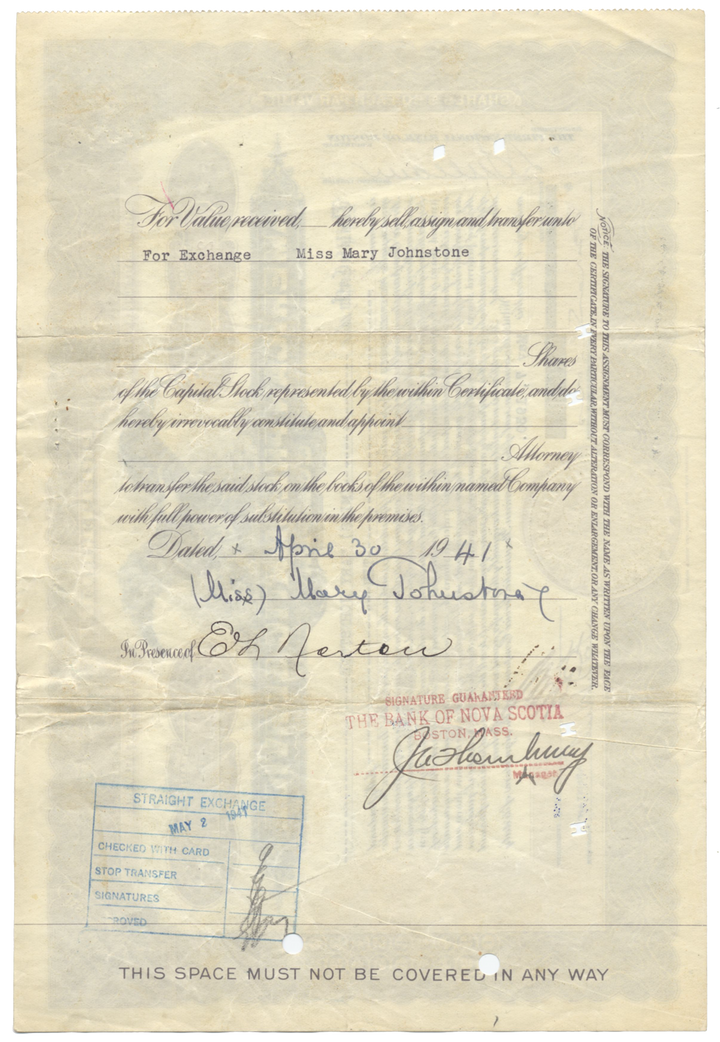 For Value received, hereby sell, assign and transfer unto
For Exchange Miss Mary Johnstone
Shares
of the Capital Stock represented by the within Certificate, and do
hereby irrevocably constitute and appoint
Attorney
to transfer the said stock, on the books of the within named Company
with full power of substitution in the premises.
Dated, x April 30 1941 x
(Miss) Mary Johnstone
In Presence of
SIGNATURE GUARANTEED
THE BANK OF NOVA SCOTIA
BOSTON, MASS.
Manager
STRAIGHT EXCHANGE
MAY 2 1941
CHECKED WITH CARD
STOP TRANSFER
SIGNATURES
THIS SPACE MUST NOT BE COVERED IN ANY WAY
NOTICE. THE SIGNATURE TO THIS ASSIGNMENT MUST CORRESPOND WITH THE NAME AS WRITTEN UPON THE FACE
OF THE CERTIFICATE, IN EVERY PARTICULAR, WITHOUT ALTERATION OR ENLARGEMENT, OR ANY CHANGE WHATEVER.